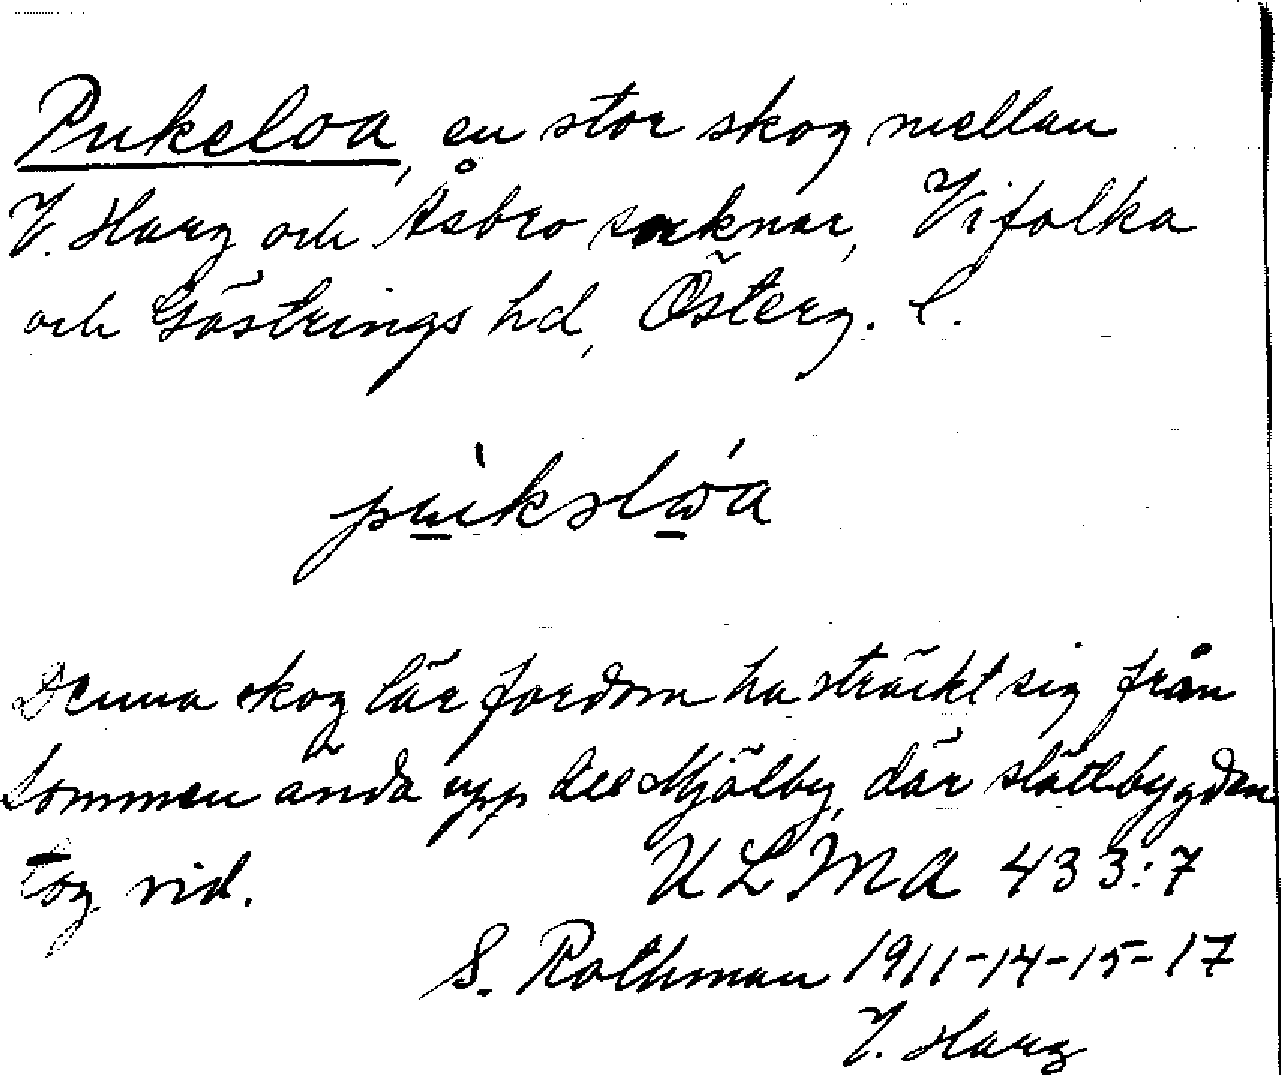 Pukeloa, en stor skog mellan
V. Harg och Åsbo socknar, Vifolka
och Göstrings hd, Österg. l.
Denna skog lär fordom ha sträckt sig från
Sommen ända upp till Mjölby, där slättbygden
tog vid.
ULMA 433:7
S. Rothman 1911-14-15-17
V. Harg